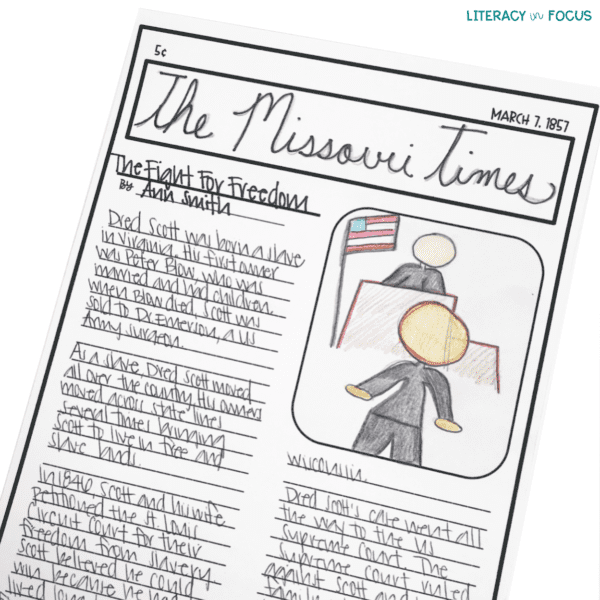 LITERACY in FOCUS
5¢
MARCH 7, 1857
The Missouri Times
The Fight For Freedom
By Ann Smith
Dred Scott was born a slave
in Virginia. His first owner
was Peter Blow, who was
married and had children.
When Blow died, Scott was
sold to Dr. Emerson, a US
Army surgeon.
As a slave, Dred Scott moved
all over the country. His owners
moved across state lines
several times bringing
Scott to live in free and
slave lands.
In 1846, Scott and his wife
petitioned the St. Louis
Circuit Court for their
freedom from slavery.
Scott believed he could
win because he had
lived long
Wisconsin.
Dred Scott's case went all
the way to the US
Supreme Court. The
Supreme Court ruled
against Scott and